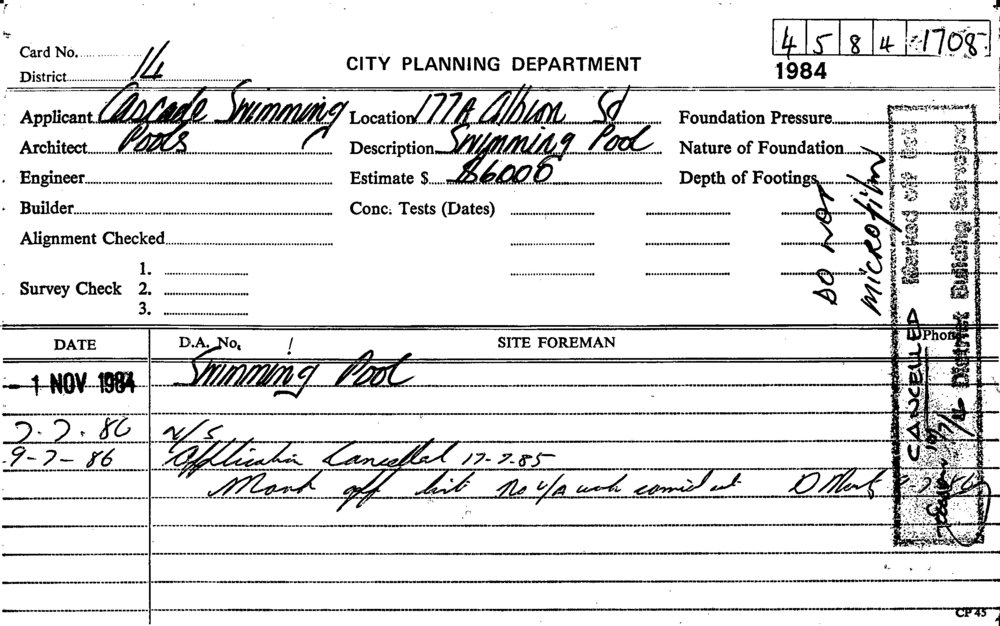 4 5 8 4 1708
Card No. 14
CITY PLANNING DEPARTMENT
1984
District
Applicant Cascade Swimming
Location 177A Albion St
Foundation Pressure
Architect Pools
Description Swimming Pool
Nature of Foundation
Engineer
Estimate $ $6000
Depth of Footings
Builder
Conc. Tests (Dates)
Alignment Checked
1.
Survey Check 2.
3.
DO NOT
MICROfilm
Marked off list
District Building Surveyor
CANCELLED
DATE
D.A. No.
SITE FOREMAN
Phone
- 1 NOV 1984
Swimming Pool
7-7.86
N/S
9-7-86
Application Cancelled 17-7.85
Mark off list No work carried out
CP 45